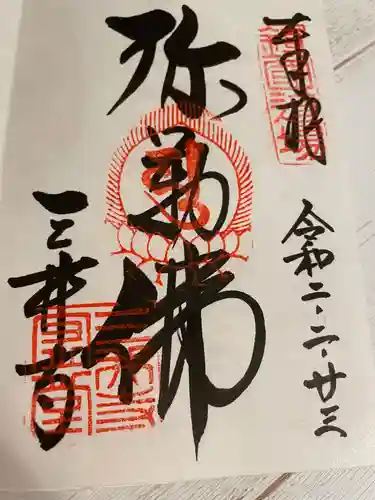 奉拝
令和二・二・廿三
弥勒佛
三井寺